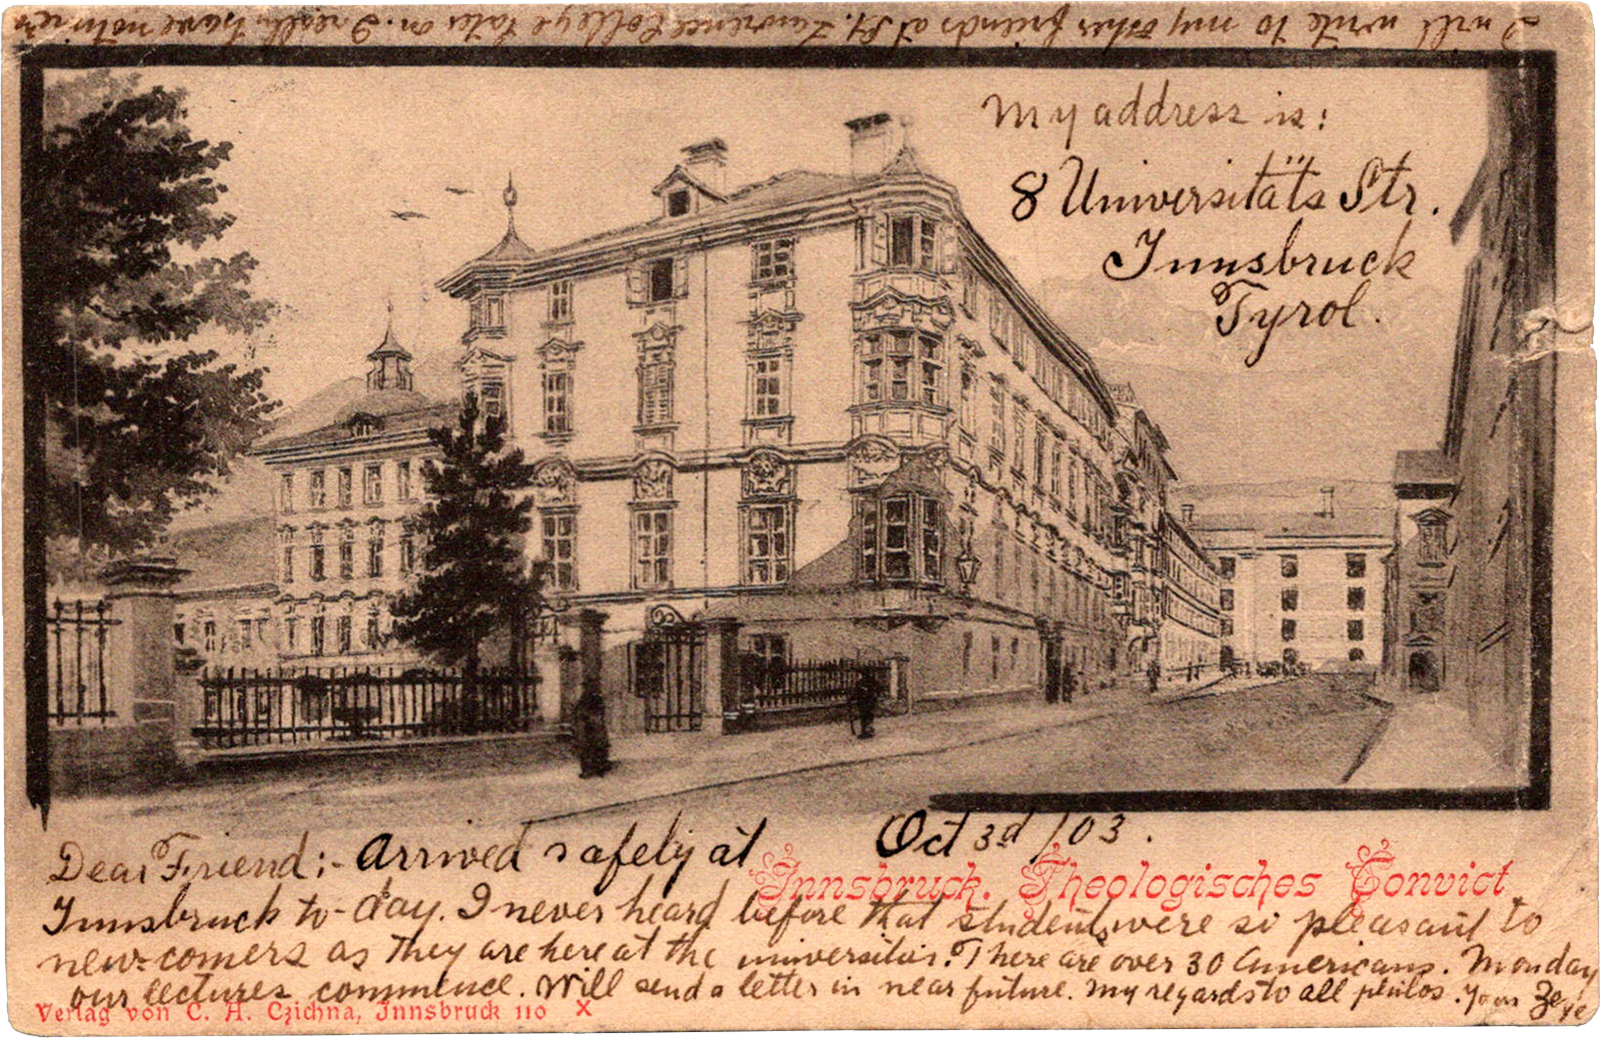 I will write to my other friends at St. Lawrence College later on. I really have not
My address is:
8 Universitäts Str.
Innsbruck
Tyrol.
Oct 3d /03.
Dear Friend:- Arrived safely at
Innsbruck. Theologisches Convict
Innsbruck to-day. I never heard before that students were so pleasant to
new-comers as they are here at the . There are over 30 Americans. Monday
our lectures commence. Will send a letter in near future. My regards to all philos. Your
Verlag von C. A. Czichna, Innsbruck 110 X